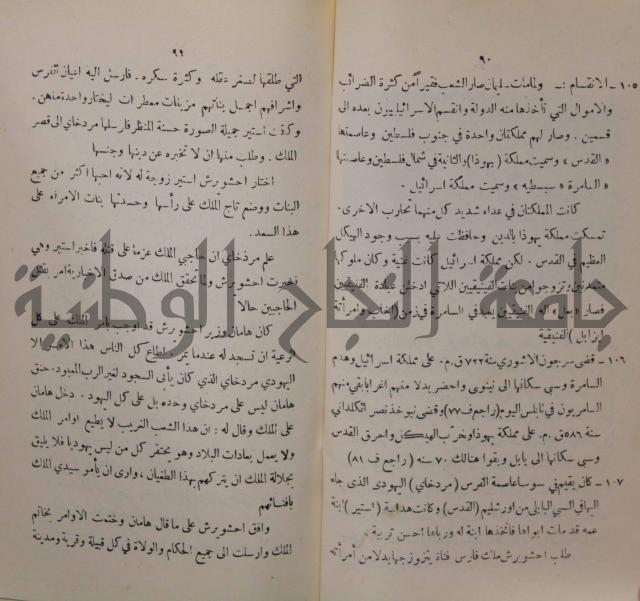 ٩٠
١٠٥ - الانقسام : - ولما مات سليمان صار الشعب فقيراً من كثرة الضرائب
والاموال التي تأخذها منه الدولة وانقسم الاسرائيليون بعده الى
قسمين . وصار لهم مملكتان واحدة في جنوب فلسطين وعاصمتها
« القدس » وسميت مملكة ( يهوذا ) والثانية في شمال فلسطين وعاصمتها
« السامرة » سبسطيه » وسميت مملكة اسرائيل .
كانت المملكتان في عداء شديد كل منهما تحارب الاخرى .
تمسكت مملكة يهوذا بالدين وحافظت عليه بسبب وجود الهيكل
العظيم في القدس . لكن مملكة اسرائيل كانت غنية وكان ملوكها
يتزوجوا من بنات الفينيقيين اللاتي ادخلن عبادة الفينيقيين
فصار « بعل » اله الفينيقيين يعبد في السامرة في زمن اخاب وامرأته
( ايزابل ) الفنيقية
١٠٦ - قضى سرجون الاشوري سنة ٧٢٢ ق.م. على مملكة اسرائيل وهدم
السامرة وسبى سكانها الى نينوى واحضر بدلا منهم اغراباً بقي منهم
السامريون في نابلس اليوم ( راجع ف ٧٧ ) وقضى نبوخذ نصر الكلداني
سنة ٥٨٦ ق.م. على مملكة يهوذا وخرب الهيكل واحرق القدس
وسبى سكانها الى بابل وبقوا هنالك ٧٠ سنه ( راجع ف ٨١ )
١٠٧ - كان يقيم في سوسا عاصمة الفرس ( مردخاي ) اليهودى الذى جاء
اليها في السبي البابلي من اورشليم ( القدس ) وكانت هداسة ( استير ) ابنة
عمه قد مات ابواها فاتخذها ابنة له ورباها أحسن تربية .
طلب احشويرش ملك فارس فتاة يتزوج بها بدلا من أمرأته
٩١
التي طلقها لصغر عقله وكثرة سكره . فارسل اليه اعيان الفرس
واشرافهم اجمل بناتهم مزينات معطرات ليختار واحدة منهن .
وكانت استير جميلة الصورة حسنة المنظر فارسلها مردخاي الى قصر
الملك . وطلب منها ان لا تخبره عن دينها وجنسها
اختار احشويرش استير زوجة له لأنه احبها اكثر من جميع
البنات ووضع تاج الملك على رأسها وحسدتها بنات الامراء على
هذا السعد .
علم مردخاي ان حاجبي الملك عزما على قتله فاخبر استير وهي
أخبرت احشويرش ولما تحقق الملك من صدق الاخبارية امر بقتل
الحاجبين حالا
كان هامان وزير احشويرش قد اوجب بامر الملك على كل
الرعية ان تسجد له عندما يمر . اطاع كل الناس هذا الامر الا
اليهودي مردخاي الذي كان يأبى السجود لغير الرب المعبود . حنق
هامان ليس على مردخاي وحده بل على كل اليهود . دخل هامان
على الملك وقال له : ان هذا الشعب الغريب لا يطيع اوامر الملك
ولا يعمل بعادات البلاد وهو يحتقر كل من ليس يهوديا فلا يليق
بجلالة الملك ان يتركهم بهذا الطغيان ، وارى ان يأمر سيدي الملك
بافنائهم
وافق احشويرش على ما قال هامان وختمت الاوامر بخاتم
الملك وارسلت الى جميع الحكام والولاة في كل قبيلة وقرية ومدينة
جامعة النجاح الوطنية